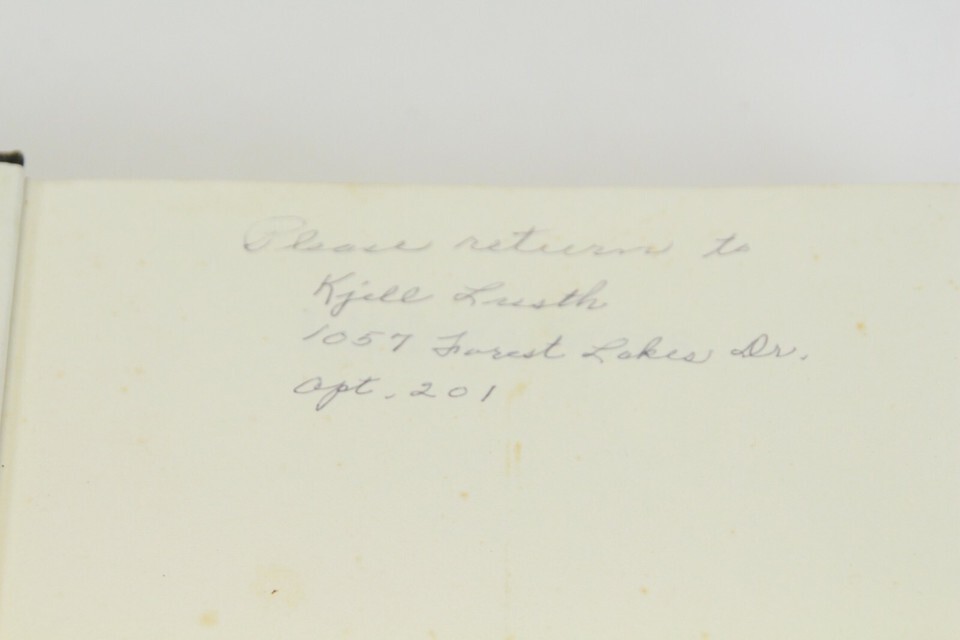 Please return to
Kjell Lusth
1057 Forest Lakes Dr.
Apt. 201